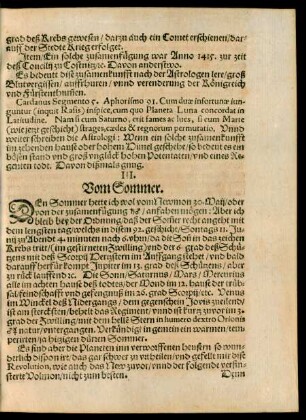 grad deß Krebs gewesen/ darzu auch ein Comet erschienen/ dar-
auff der Stedte Krieg erfolget.
Item/ Ein solche zusamenfügung war Anno 1415. zur zeit
deß Concilij zu Costnitz. Davon anderstwo.
Es bedeut diese zusamenkunfft nach der Astrologen lere/ groß
Blutvergissen/ auffrhuren/ vnnd verenderung der Königreich
vnd Fürstenthumben.
Cardanus Segmento 5. Aphorismo 91. Cum duæ infortunæ iun-
guntur (inquit Rasis) inspice, cum quo Planeta Luna concordat in
Latitudine. Nam si cum Saturno, erit fames ac lues, si cum Marte
(wie jetzt geschicht) strages, cædes & regnorum permutatio. Vnnd
weiter schreiben die Astrologi: Wenn ein solche zusamenkunfft
im zehenden hause oder hohem Himel geschehe/ so bedeut es ein
bösen stand vnd groß vnglück hohen Potentaten/ vnd eines Re-
genten todt. Davon dißmals gnug.
III.
Vom Sommer.
DEn Sommer hette ich wol vom Newmon 30. Maij/ oder
von der zusamenfügung ♄♂ anfahen mögen: Aber ich
bleib bey der Ordnung/ daß der Somer recht angehet mit
dem lengsten tag/ welchs in disem 92. geschihet/ Sontags 11. Ju-
nij zu Abend 4. minuten nach 6. vhrn/ da die Son in das zeichen
Krebs tritt/ (im gestirneten Zwilling) vnd der 5. grad deß Schü-
tzens mit deß Scorpij Hertzstern im Auffgang stehet/ vnd bald
darauff herfür kompt Jupiter im 13. grad deß Schützens/ aber
zu rück lauffend 2c. Die Sonn/ Saturnus/ Mars/ Mercurius
alle im achten hause deß todtes/ der Mond im 12. hause der trüb-
sal/ feindschafft vnd gefengnuß im 26. grad Scorpij/ 2c. Venus
im Winckel deß Vndergangs/ dem gegenschein Jovis zueilend/
ist am sterckesten/ behelt das Regiment/ vnnd ist kurtz zuvor im 3.
grad der Zwilling/ mit dem hellē Stern in humero dextro Orionis
♂ natur/ vntergangen. Verkündigt in gemein ein warmen/ tem-
perirten/ ja hitzigen dürren Sommer.
Es sind aber die Planeten inn verworffenen heusern so wun-
derlich disponirt/ das gar schwer zu vrtheilen/ vnd gefellt mir dise
Revolution, wie auch das New zuvor/ vnd der folgende verfin-
sterte Volmon/ nicht zum besten.
Denn